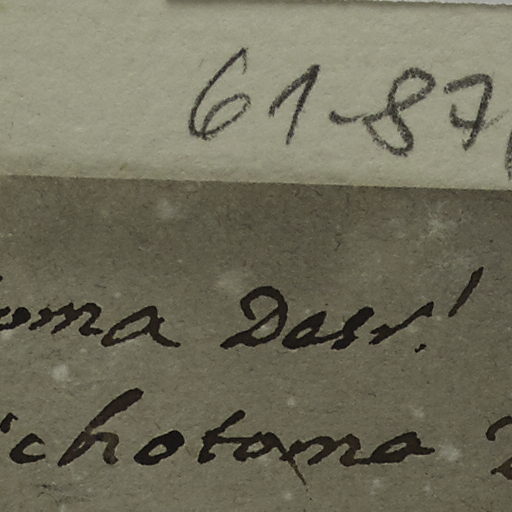 61-87
oma Desv.!
ichotoma